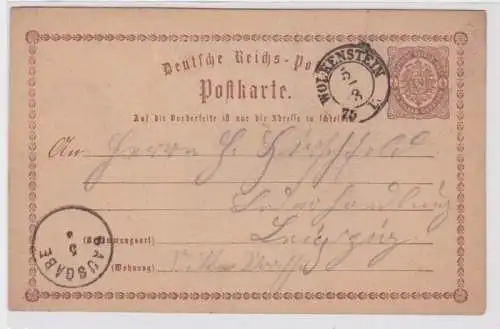 Deutsche Reichs-Po
Postkarte.
WOLKENSTEIN
8
75
Auf die Vorderseite ist nur die Adresse zu schreiben
An Herrn H. Hirschfeld
Lederhandlung
(Bestimmungsort) Leipzig
(Wohnung)
AUSGABE
5